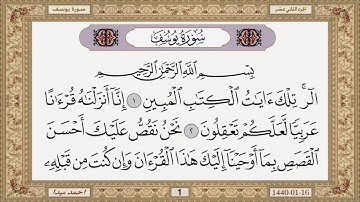 الجزء الثاني عشر
سورة يوسف
سُورَةُ يُوسُفَ
بِسْمِ ٱللَّهِ ٱلرَّحْمَٰنِ ٱلرَّحِيمِ
الٓر ۚ تِلْكَ ءَايَٰتُ ٱلْكِتَٰبِ ٱلْمُبِينِ ١ إِنَّآ أَنزَلْنَٰهُ قُرْءَٰنًا
عَرَبِيًّا لَّعَلَّكُمْ تَعْقِلُونَ ٢ نَحْنُ نَقُصُّ عَلَيْكَ أَحْسَنَ
ٱلْقَصَصِ بِمَآ أَوْحَيْنَآ إِلَيْكَ هَٰذَا ٱلْقُرْءَانَ وَإِن كُنتَ مِن قَبْلِهِۦ
1440-01-16
1
احمد